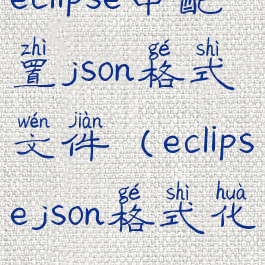 eclipse中配
zhì gé shì
置json格式
wén jiàn
文件（eclips
gé shì huà
ejson格式化